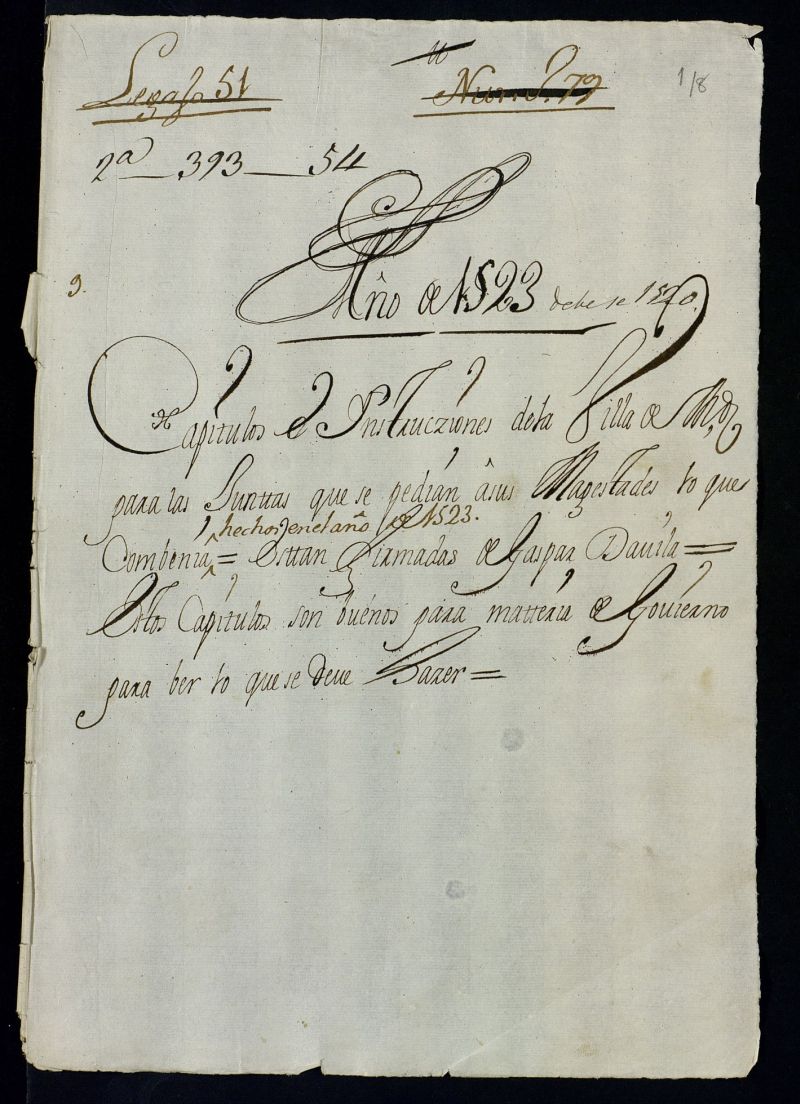 Legaxo 51
Num.o 79
1/8
2ª — 393 — 54
9.
Año de 1523 debe se 1520.
Capitulos e Instrucziones de la Villa de Md
para las Junttas que se pedian â sus Magestades lo que
hechos en el año de 1523.
Combenia = Esttan firmadas de Gaspar Davila =
Estos Capitulos son buenos para matteria de Govierno
para ber lo que se deve Hazer =